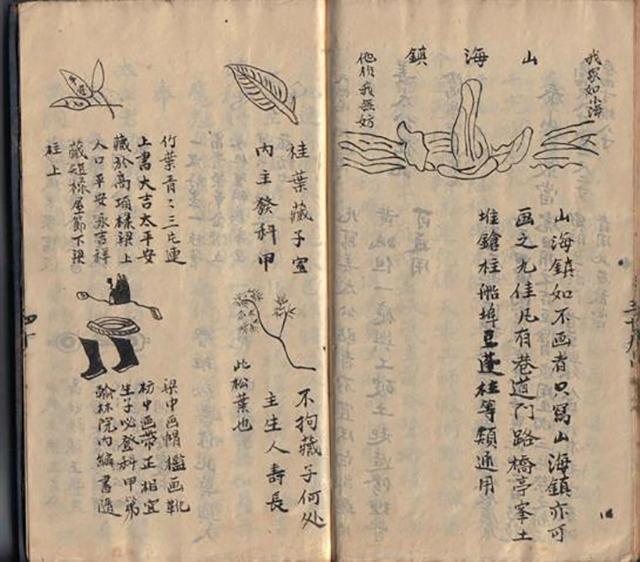 我家如山海
山海鎮
他作我無妨
山海鎮如不画者只寫山海鎮亦可
画之尤佳凡有巷道门路橋亭峯土
堆鎗柱船埠豆蓬柱等類通用
桂葉藏于
内主發科甲
竹葉青〻三片連
上書大吉太平安
藏於高項樑梁上
人口平安永吉祥
藏短椽屋節下梁
柱上
不拘藏于何处
主生人壽長
此松葉也
梁中画帽檻画靴
枋中画帶正相宜
生子必登科甲第
翰林院内編書